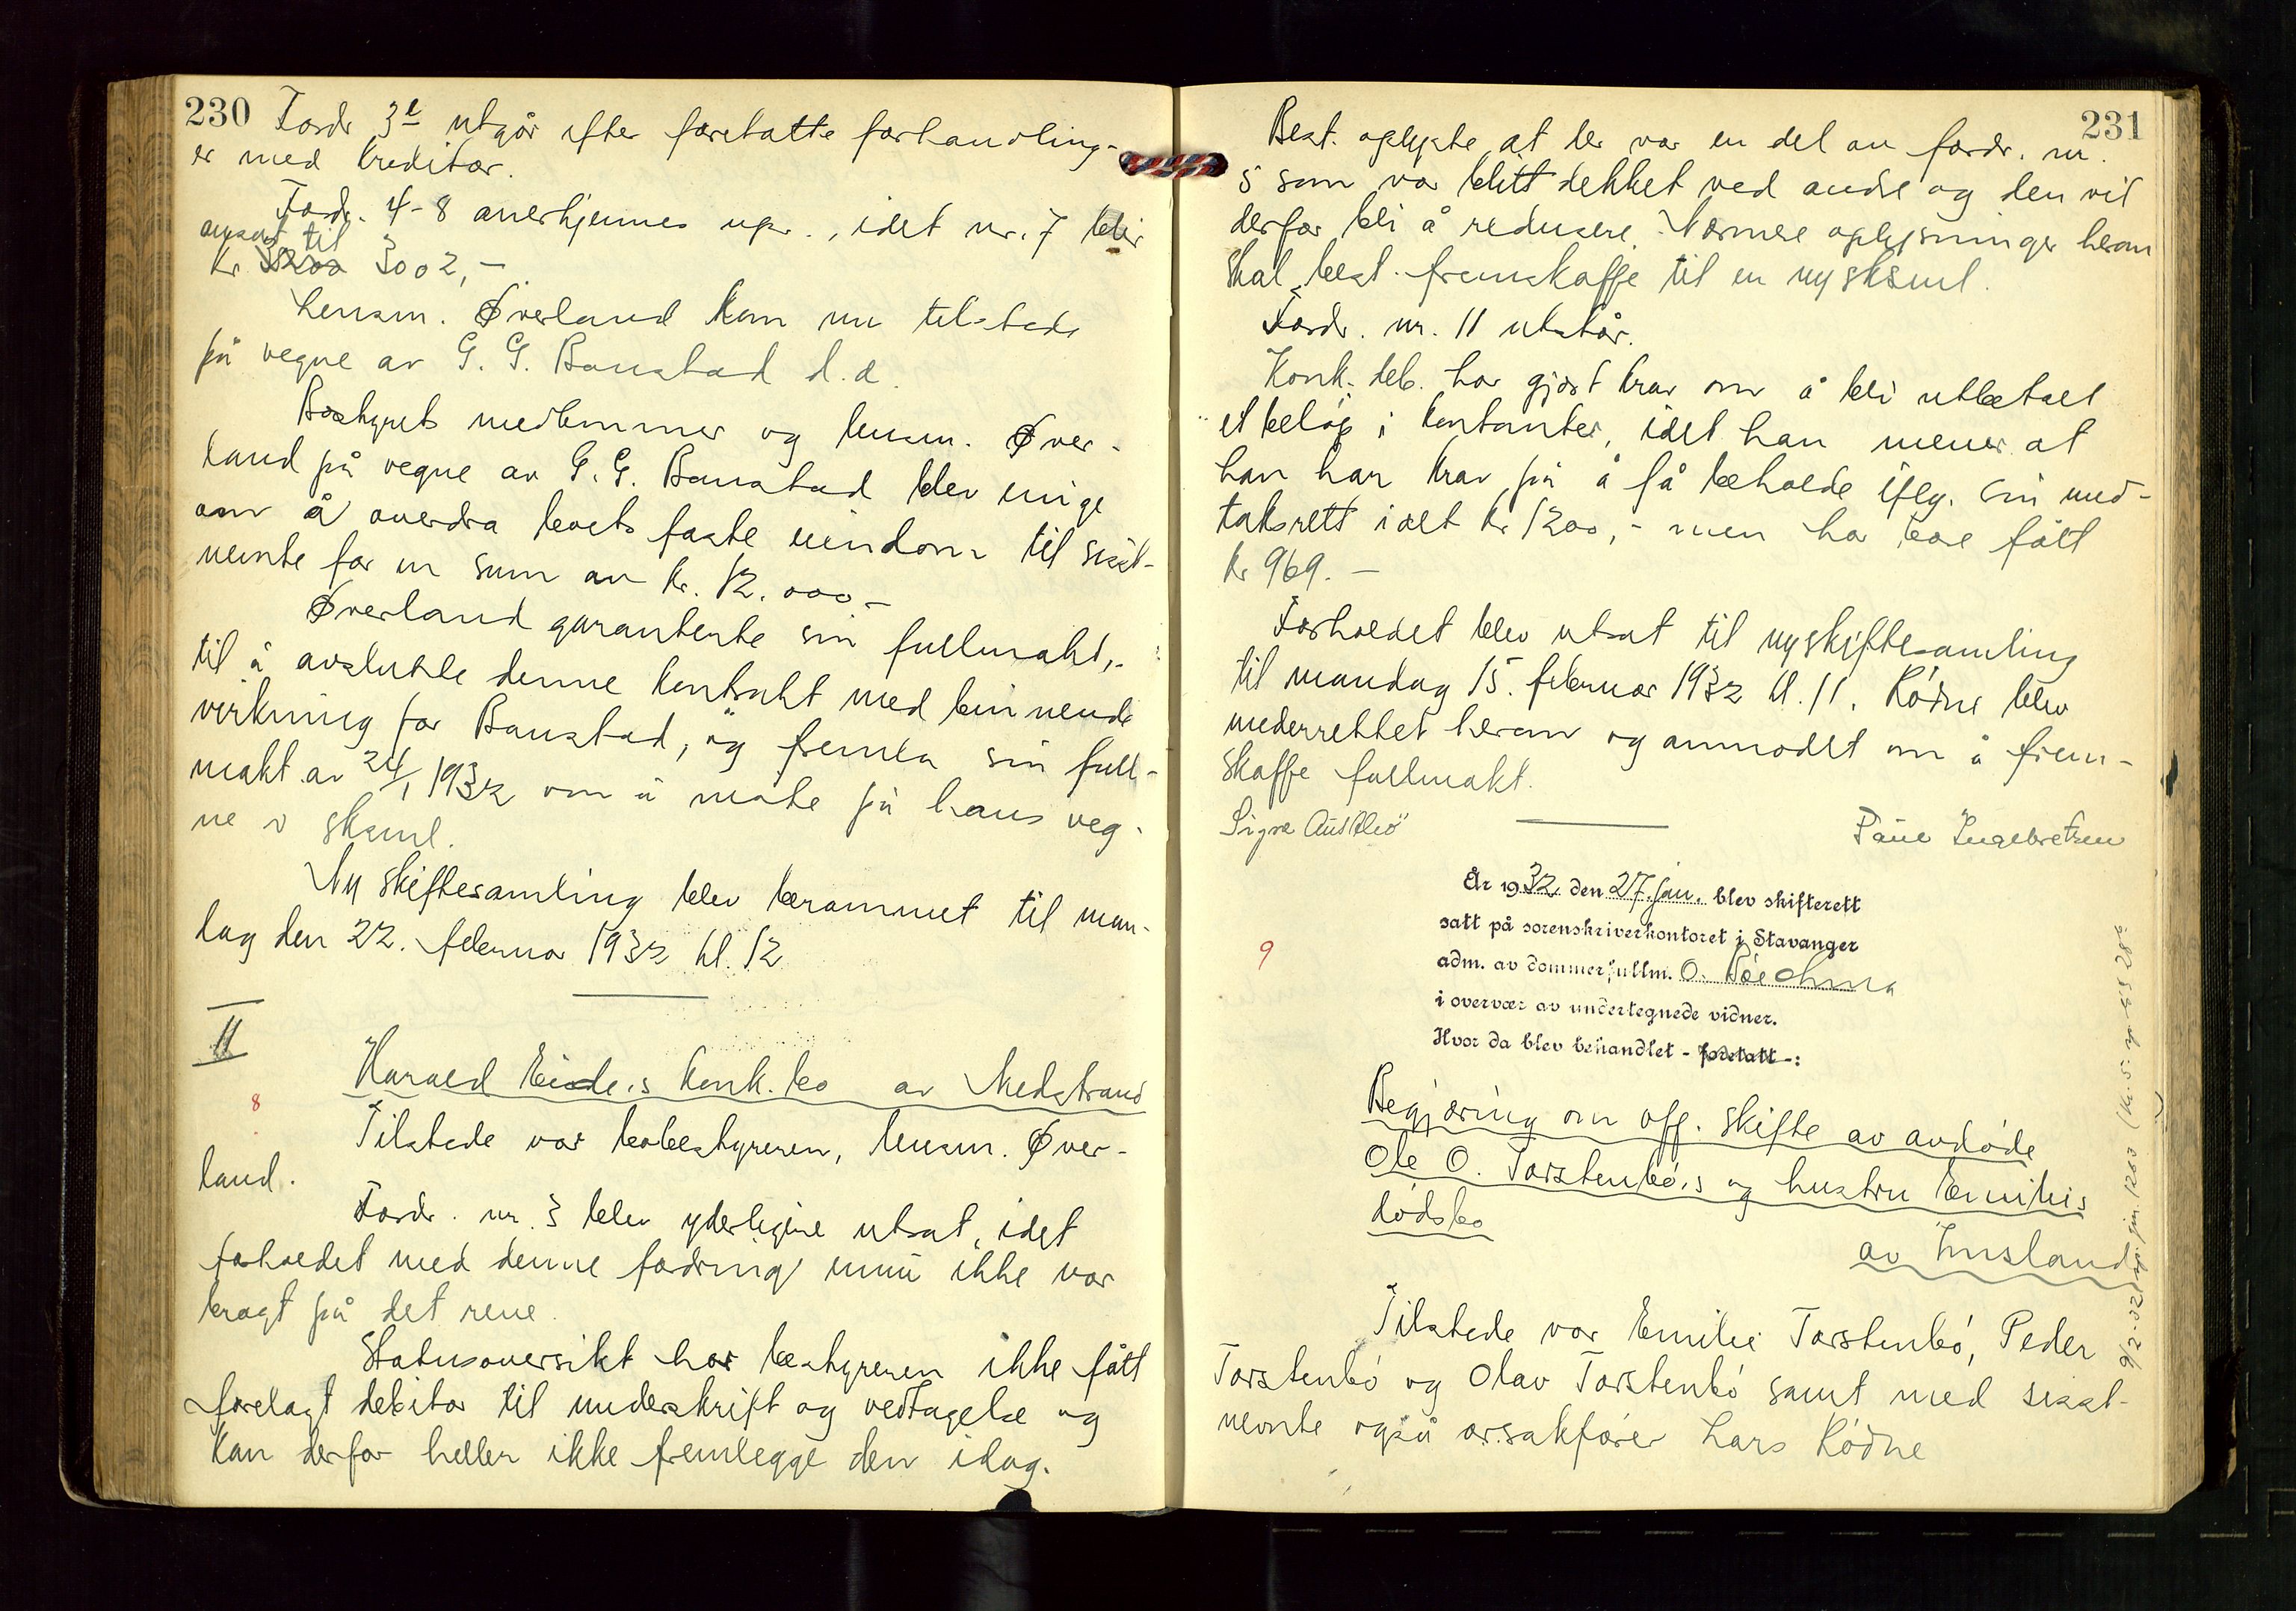 230
Fordr 3e utgår efter foretatte forhandling-
er med kreditor.
Fordr. 4-8 anerkjennes upr., idet nr. 7 blir
ansat til
kr. 3200 3002,-
Lensm. Øverland kom nu tilstede
på vegne av G. G. Baustad d.e.
Bostyrets medlemmer og lensm. Øver-
land på vegne av G. G. Baustad blev enige
om å overdra boets faste eiendom til sist-
nevnte for en sum av kr. 12.000,-
Øverland garanterte sin fullmakt,
til å avslutte denne kontrakt med bindende
virkning for Baustad, og fremla sin full-
makt av 24/1 1932 om å møte på hans veg-
ne i sksml.
Ny skiftesamling blev berammet til man-
dag den 22. februar 1932 kl. 12
II
8
Harald Eide's konk.bo av Nedstrand
Tilstede var bobestyreren, lensm. Øver-
land.
Fordr. nr. 3 blev yderligere utsat, idet
forholdet med denne fordring ennu ikke var
bragt på det rene.
Statusoversikt har bestyreren ikke fått
forelagt debitor til underskrift og vedtagelse og
kan derfor heller ikke fremlegge den idag.
231
Best. oplyste at der var en del av fordr. nr.
5 som var blitt dekket ved andre og den vil
derfor bli å redusere. Nærmere oplysninger herom
skal best. fremskaffe til en ny sksml.
Fordr. nr. 11 utstår.
Konk. deb. har gjort krav om å bli utbetalt
et beløp i kontanter, idet han mener at
han har krav på å få beholde iflg. sin ued-
taksrett idet kr 1200,- men har bare fått
kr 969.-
Forholdet blev utsat til ny skiftesamling
til mandag 15. februar 1932 kl. 11. Rödne blev
underrettet herom og anmodet om å frem-
skaffe fullmakt.
Signe Paul Ingebretsen
År 1932 den 27. jan. blev skifterett
satt på sorenskriverkontoret i Stavanger
9
adm. av dommerfullm. O.
i overvær av undertegnede vidner.
Hvor da blev behandlet - foretatt -:
Begjæring om off. skifte av avdøde
Ole O. Torstenbö's og hustru Emilies
dødsbo
av Imsland
Tilstede var Emilie Torstenbö, Peder
Torstenbö og Olav Torstenbö samt med sist-
nevnte også o.r.sakfører Lars Rödne